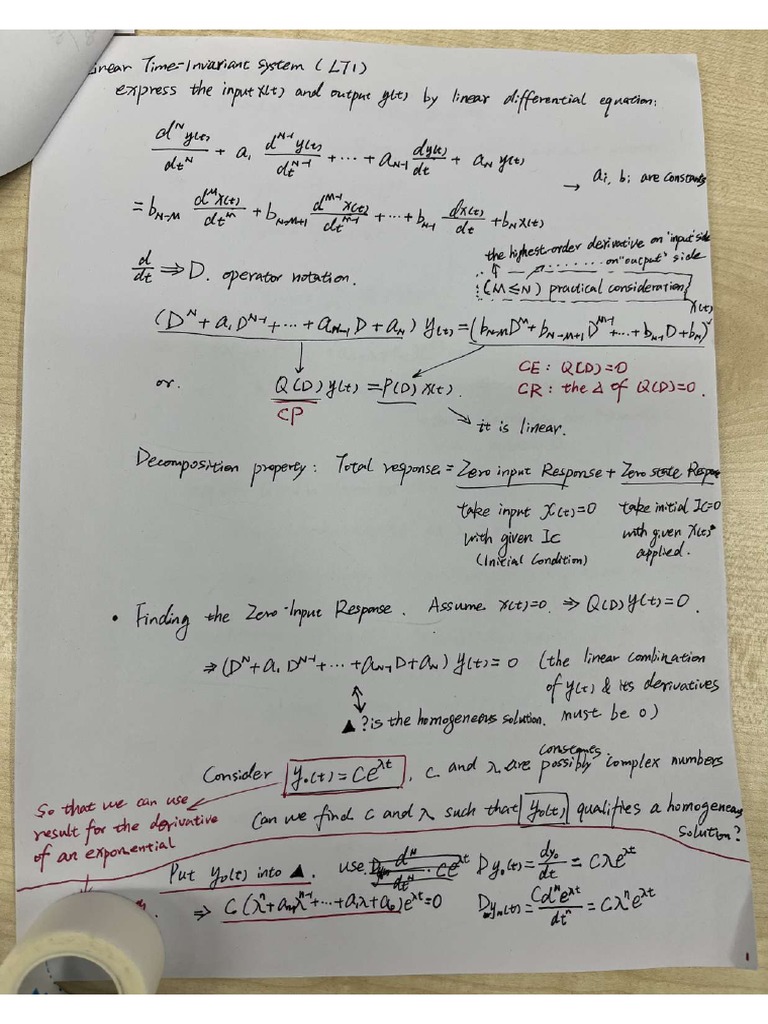 inear Time-Invariant system (LTI)
express the input x(t) and output y(t) by linear differential equation:
d^N y(t)/dt^N + a₁ d^{N-1}y(t)/dt^{N-1} + ... + a_{N-1} dy(t)/dt + a_N y(t)
→ ai, bi are constants
= b_{N-M} d^M x(t)/dt^M + b_{N-M+1} d^{M-1}x(t)/dt^{M-1} + ... + b_{N-1} dx(t)/dt + b_N x(t)
the highest-order derivative on "input" side
... on "output" side
d/dt ⇒ D. operator notation.
(M ≤ N) practical consideration
(D^N + a₁D^{N-1} + ... + a_{N-1}D + a_N) y(t) = (b_{N-M}D^M + b_{N-M+1}D^{M-1} + ... + b_{N-1}D + b_N) x(t)
CE: Q(D)=0
or. Q(D) y(t) = P(D) x(t).
CR: the Δ of Q(D)=0.
CP
it is linear.
Decomposition property: Total response = Zero input Response + Zero state Respo
take input x(t)=0 take initial IC=0
with given IC with given x(t)
(Initial Condition) applied.
• Finding the Zero-Input Response. Assume x(t)=0. ⇒ Q(D)y(t)=0.
⇒ (D^N + a₁D^{N-1} + ... + a_{N-1}D + a_N) y(t) = 0 (the linear combination
of y(t) & its derivatives
▲ ? is the homogeneous solution. must be 0)
constants
Consider y₀(t) = Ce^{λt}, c and λ are possibly complex numbers
So that we can use
result for the derivative
of an exponential
Can we find c and λ such that y₀(t) qualifies a homogeneous
solution?
Put y₀(t) into ▲. use D d^N/dt^N · Ce^{λt} Dy₀(t) = dy₀/dt = Cλe^{λt}
⇒ C(λ^n + a_{n-1}λ^{n-1} + ... + a₁λ + a₀)e^{λt} = 0 Dy_n(t) = Cd^n e^{λt}/dt^n = Cλ^n e^{λt}
1